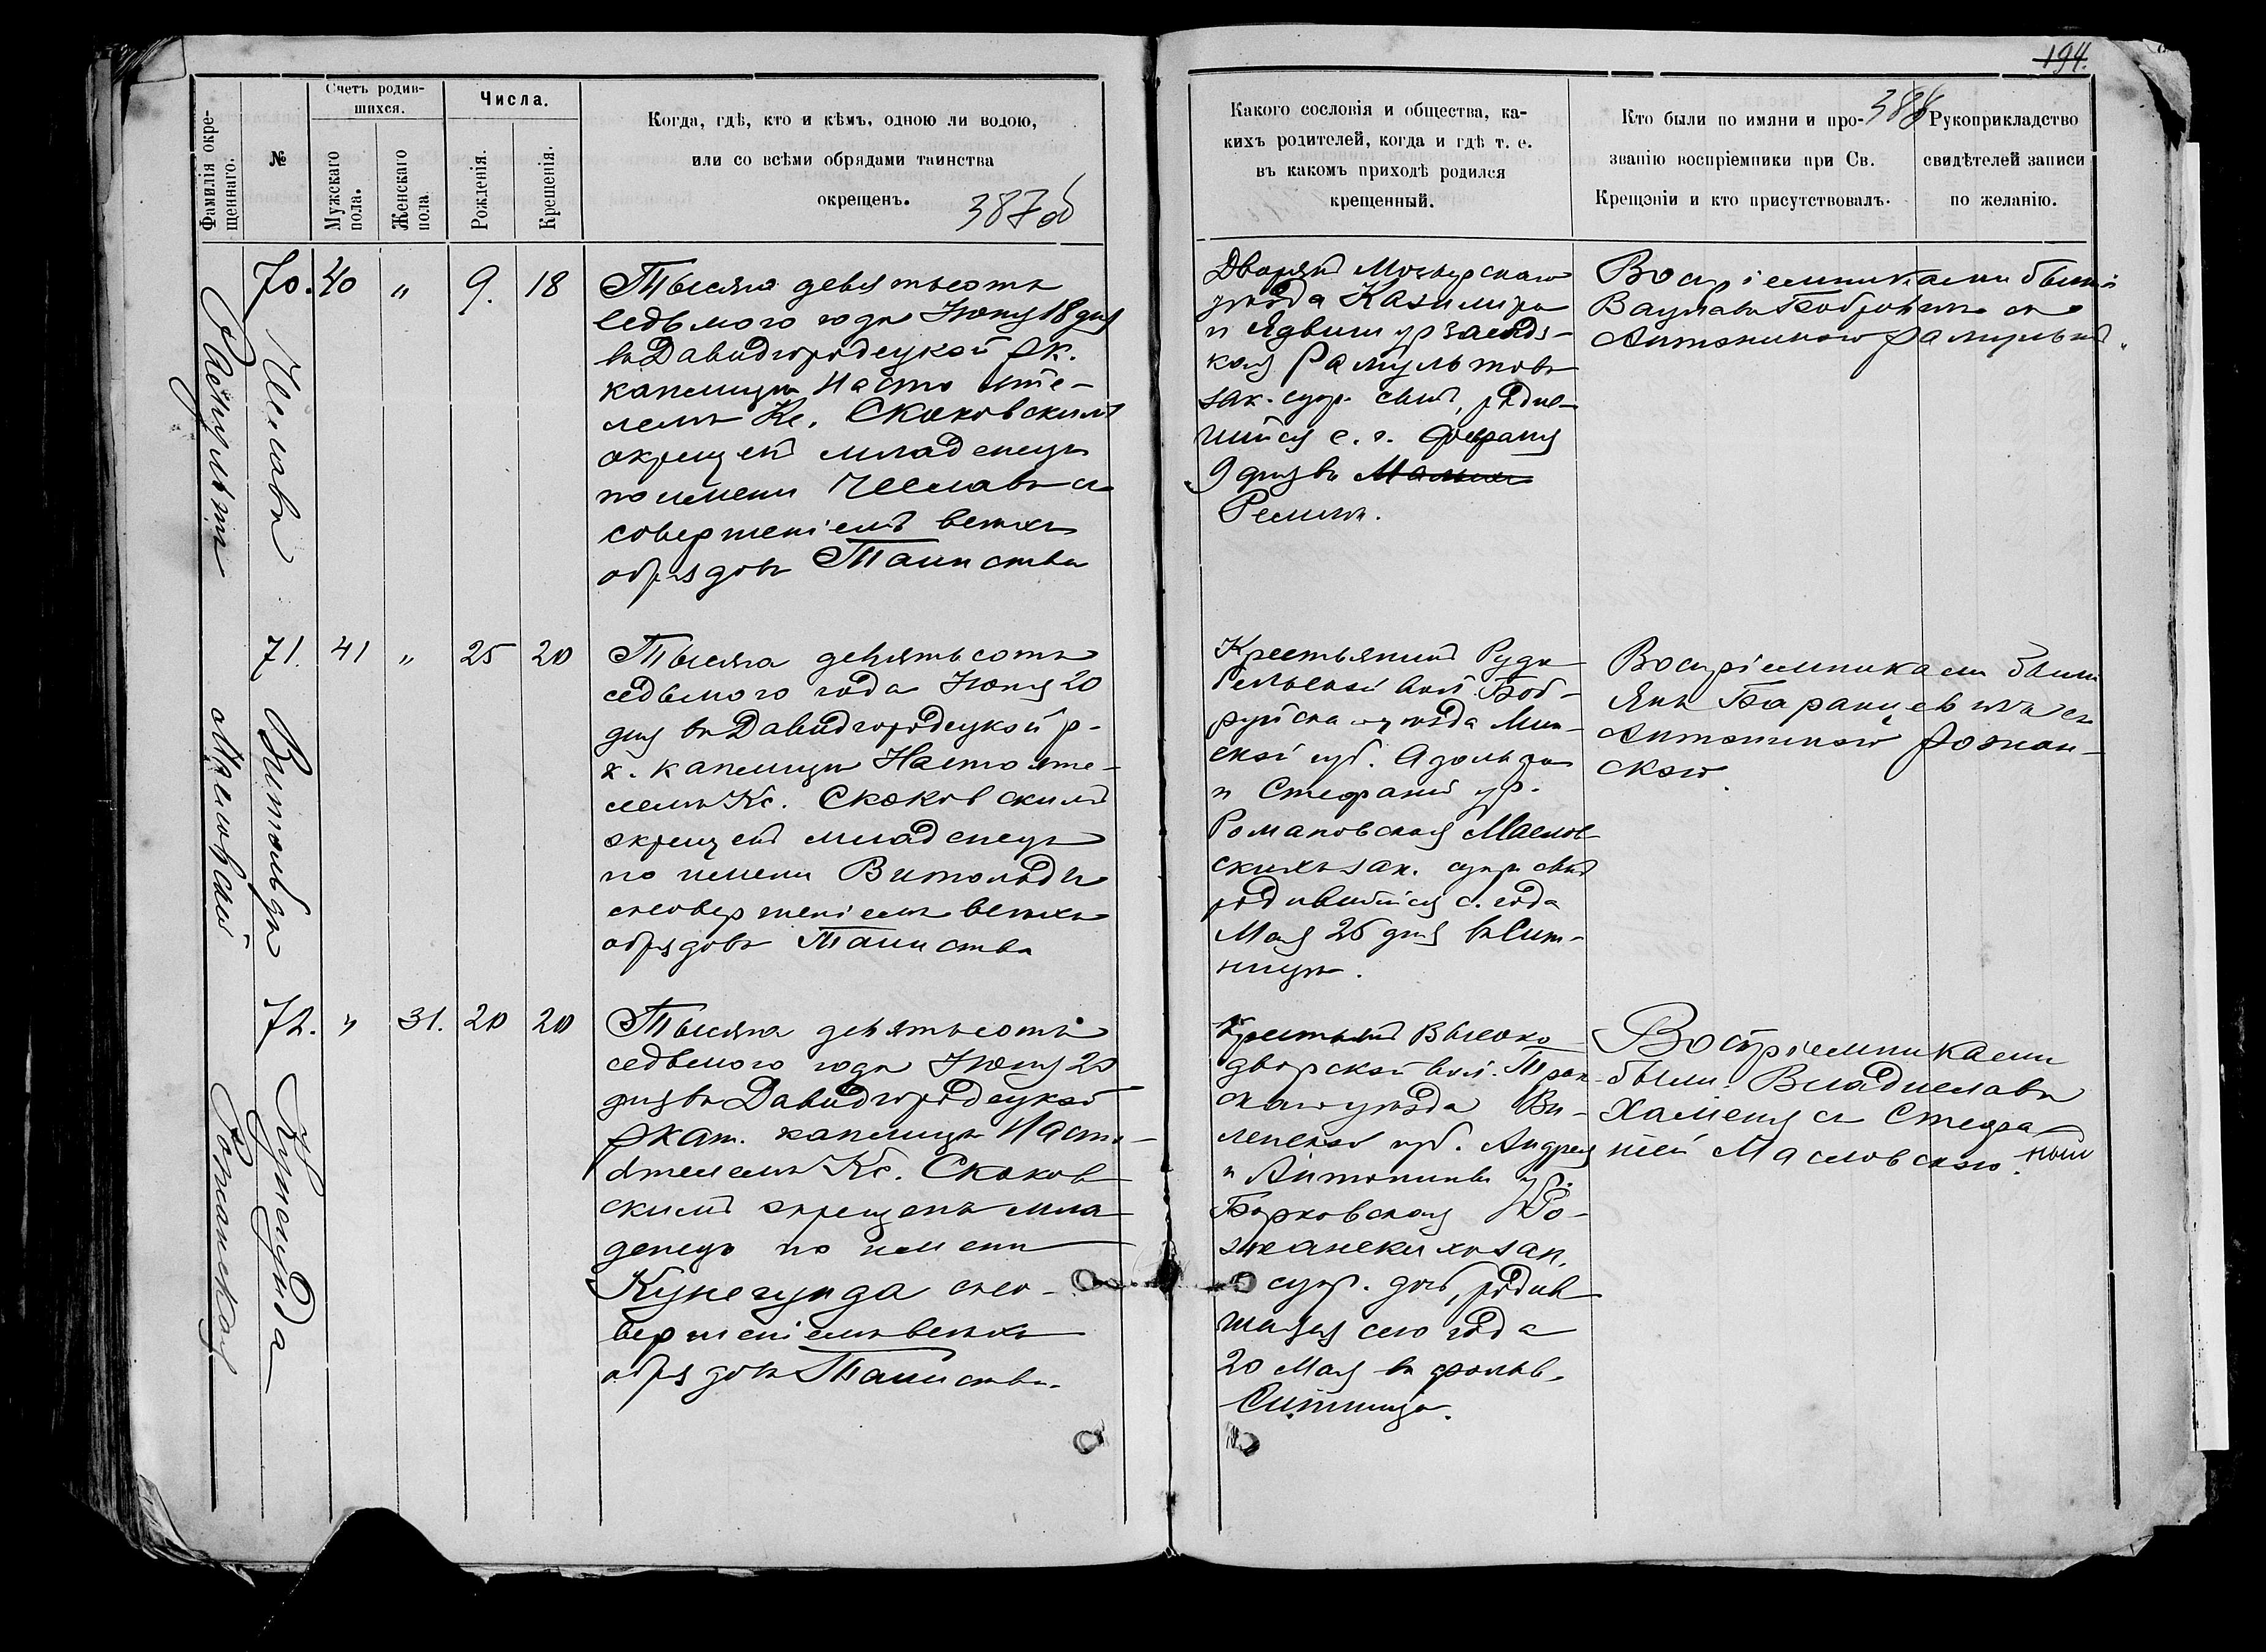 194.
388
Фамилія окрещеннаго.
№
Счетъ родившихся.
Мужскаго пола.
Женскаго пола.
Числа.
Рожденія.
Крещенія.
Когда, гдѣ, кто и кѣмъ, одною ли водою,
или со всѣми обрядами таинства
окрещенъ.
387об
Какого сословія и общества, ка-
кихъ родителей, когда и гдѣ т. е.
въ какомъ приходѣ родился
крещенный.
Кто были по имяни и про-
званію воспріемники при Св.
Крещэніи и кто присутствовалъ.
Рукоприкладство
свидѣтелей записи
по желанію.
Рамультъ
Чеславъ
70. 40 " 9. 18
Тысяча девятьсотъ
седьмого года Іюня 18 дня
въ Давидгородецкой р.к.
каплицѣ Настояте-
лемъ Кс. Скоковскимъ
окрещенъ младенецъ
по имени Чеславъ съ
совершеніемъ всѣхъ
обрядовъ Таинства
Дворянъ Мозырскаго
уѣзда Казимира
и Ядвиги ур
Рамультовъ
зак. супр. сынъ, родив-
шійся с. г. Февраля
9 дня въ
Воспріемниками были
Вацлавъ Бобровичъ съ
Антониною Рамультъ
Масловскій
Витольдъ
71. 41 " 25 20
Тысяча девятьсотъ
седьмого года Іюня 20
дня въ Давидгородецкой р.
к. каплицѣ Настояте-
лемъ Кс. Скоковскимъ
окрещенъ младенецъ
по имени Витольдъ
съ совершеніемъ всѣхъ
обрядовъ Таинства
Крестьянинъ Рудо
бельской вол. Боб-
руйска уѣзда Мин-
ской губ. Адольфа
и Стефаніи ур.
Романовская Маслов-
скихъ зак. супр. сынъ
родившійся с. года
Мая 26 дня въ Сит-
ницѣ.
Воспріемниками были
Янъ Баранцевичъ съ
Антониною Рожан-
скою.
Рожанская
Кунегунда
72. " 31. 20 20
Тысяча девятьсотъ
седьмого года Іюня 20
дня въ Давидгородецкой
р кат. каплицѣ Насто-
ятелемъ Кс. Скоков-
скимъ окрещенъ мла-
денецъ по имени
Кунегунда съ со-
вершеніемъ всѣхъ
обрядовъ Таинства.
Крестьянъ Высоко
дворской вол. Трок-
скаго уѣзда Ви-
ленской губ. Андрея
и Антонины ур.
Борковская Ро-
жанскихъ зак.
супр. дочь, родив-
шаяся сего года
20 Мая въ фольв.
Ситница.
Воспріемниками
были Владиславъ
Хамения съ Стефа-
ніей Масловскою.